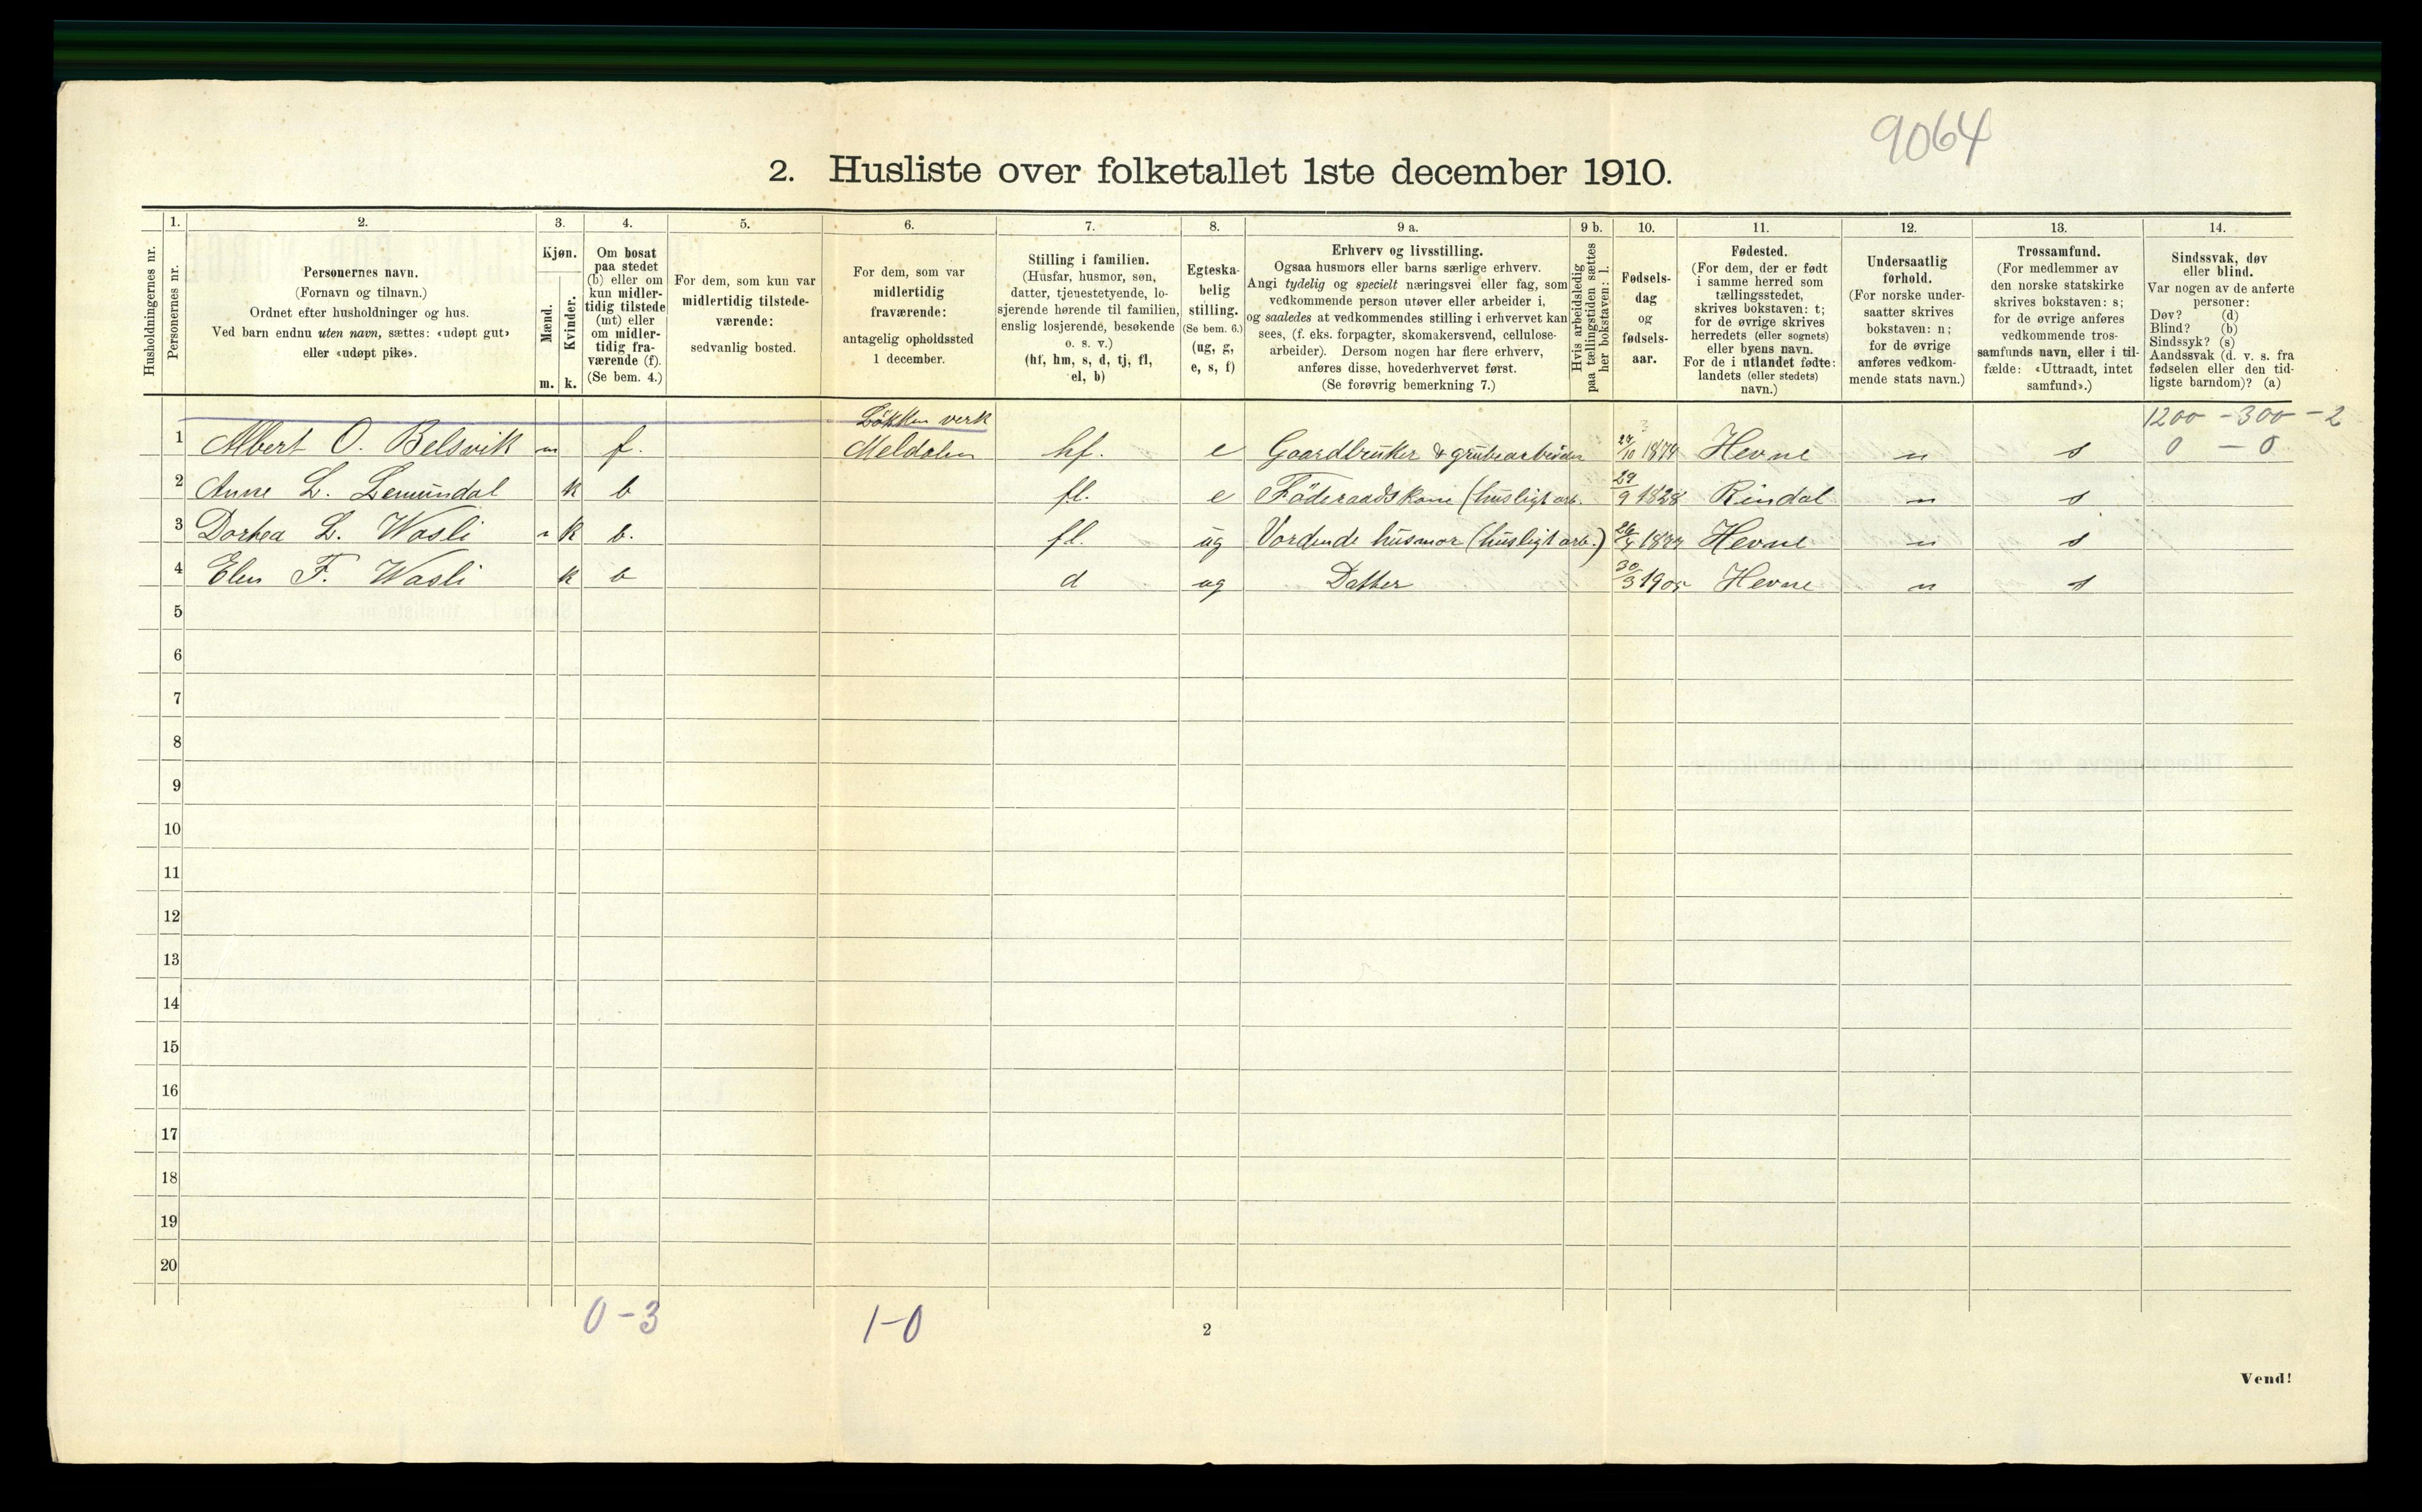 9064
2. Husliste over folketallet 1ste december 1910.
Husholdningernes nr.
1.
Personernes nr.
2.
Personernes navn.
(Fornavn og tilnavn.)
Ordnet efter husholdninger og hus.
Ved barn endnu uten navn, sættes: «udøpt gut»
eller «udøpt pike».
3.
Kjøn.
Mænd.
Kvinder.
m. k.
4.
Om bosat
paa stedet
(b) eller om
kun midler-
tidig tilstede
(mt) eller
om midler-
tidig fra-
værende (f).
(Se bem. 4.)
5.
For dem, som kun var
midlertidig tilstede-
værende:
sedvanlig bosted.
6.
For dem, som var
midlertidig
fraværende:
antagelig opholdssted
1 december.
7.
Stilling i familien.
(Husfar, husmor, søn,
datter, tjenestetyende, lo-
sjerende hørende til familien,
enslig losjerende, besøkende
o. s. v.)
(hf, hm, s, d, tj, fl,
el, b)
8.
Egteska-
belig
stilling.
(Se bem. 6.)
(ug, g,
e, s, f)
9 a.
Erhverv og livsstilling.
Ogsaa husmors eller barns særlige erhverv.
Angi tydelig og specielt næringsvei eller fag, som
vedkommende person utøver eller arbeider i,
og saaledes at vedkommendes stilling i erhvervet kan
sees, (f. eks. forpagter, skomakersvend, cellulose-
arbeider). Dersom nogen har flere erhverv,
anføres disse, hovederhvervet først.
(Se forøvrig bemerkning 7.)
9 b.
Hvis arbeidsledig
paa tællingstiden sættes
her bokstaven: l.
10.
Fødsels-
dag
og
fødsels-
aar.
11.
Fødested.
(For dem, der er født
i samme herred som
tællingsstedet,
skrives bokstaven: t;
for de øvrige skrives
herredets (eller sognets)
eller byens navn.
For de i utlandet fødte:
landets (eller stedets)
navn.)
12.
Undersaatlig
forhold.
(For norske under-
saatter skrives
bokstaven: n;
for de øvrige
anføres vedkom-
mende stats navn.)
13.
Trossamfund.
(For medlemmer av
den norske statskirke
skrives bokstaven: s;
for de øvrige anføres
vedkommende tros-
samfunds navn, eller i til-
fælde: «Uttraadt, intet
samfund».)
14.
Sindssvak, døv
eller blind.
Var nogen av de anførte
personer:
Døv? (d)
Blind? (b)
Sindssyk? (s)
Aandssvak (d. v. s. fra
fødselen eller den tid-
ligste barndom)? (a)
Løkken verk 1200 - 300 - 2
1 Albert O. Belsvik m f. Meldalen hf. e Gaardbruker & grubearbeider 27/10 1874 Hevne n s 0 - 0
2 Anne L. Lemundal k b fl. e Føderaadskone (husligt arb. 29/9 1828 Rindal n s
3 Dorhea L. Wasli k b. fl. ug Vordende husmor (husligt arb.) Hevne n s
4 Elen F. Wasli k b d ug Datter 30/3 1905 Hevne n s
5
6
7
8
9
10
11
12
13
14
15
16
17
18
19
20
0-3 1-0
2
Vend!